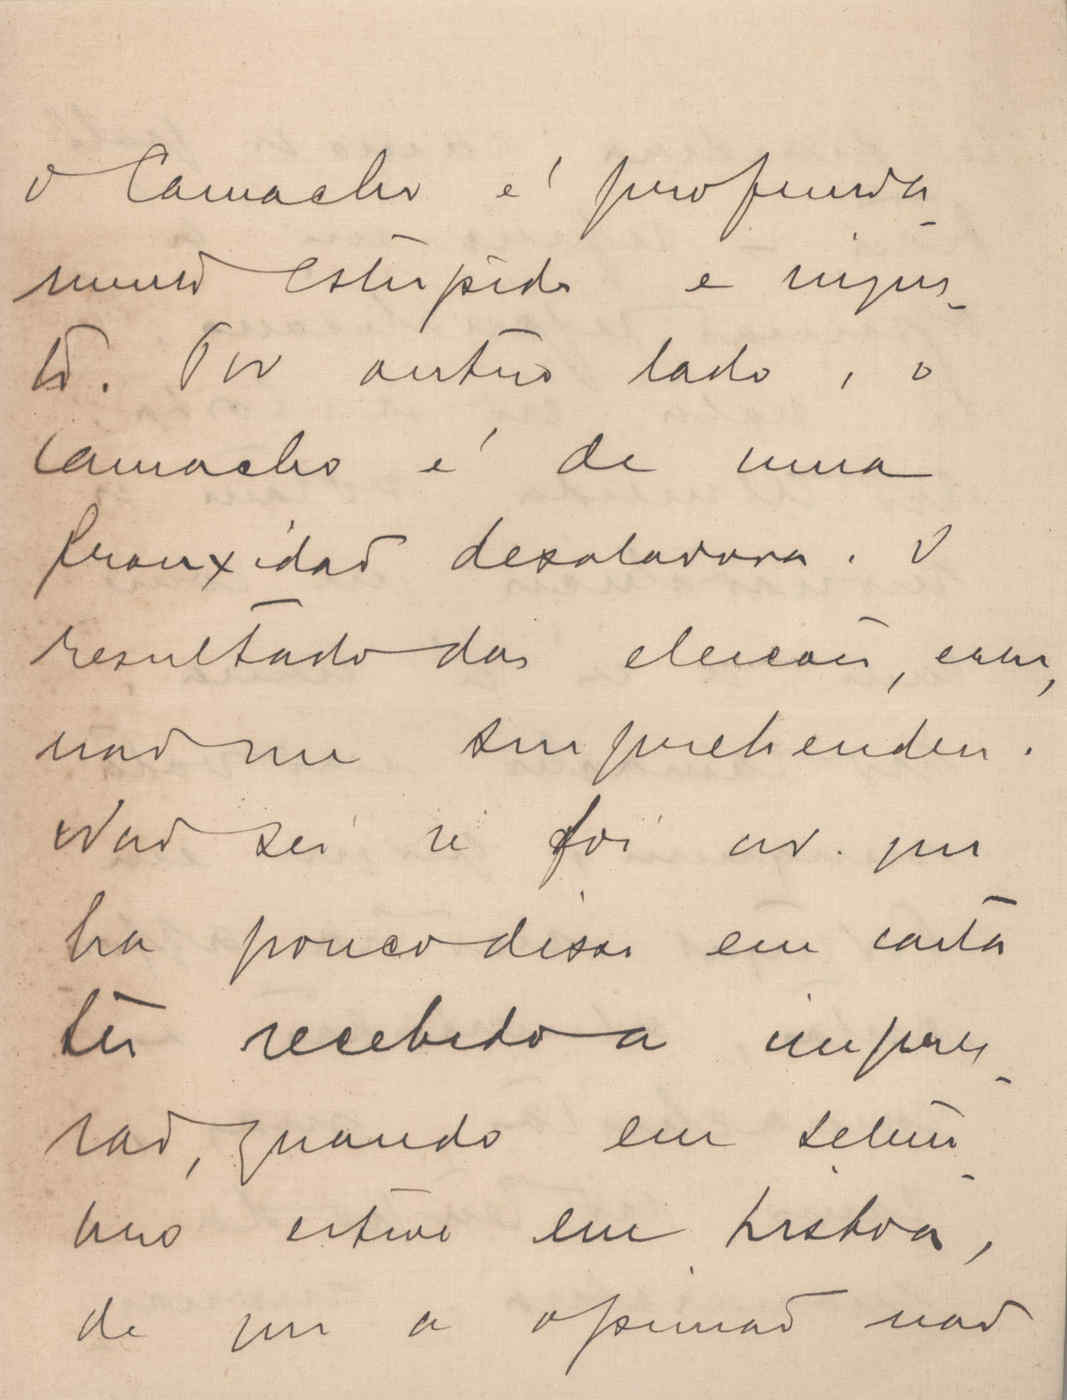 O Camacho é profunda-
mente estupido e injus-
to. Por outro lado, o
Camacho é de uma
frouxidão desoladora. O
resultado das eleições,
não me surprehendeu.
Não sei se foi a v. que
ha pouco disse em carta
ter recebido a impres-
são, quando em setem-
bro estive em Lisboa,
de que a opinião não